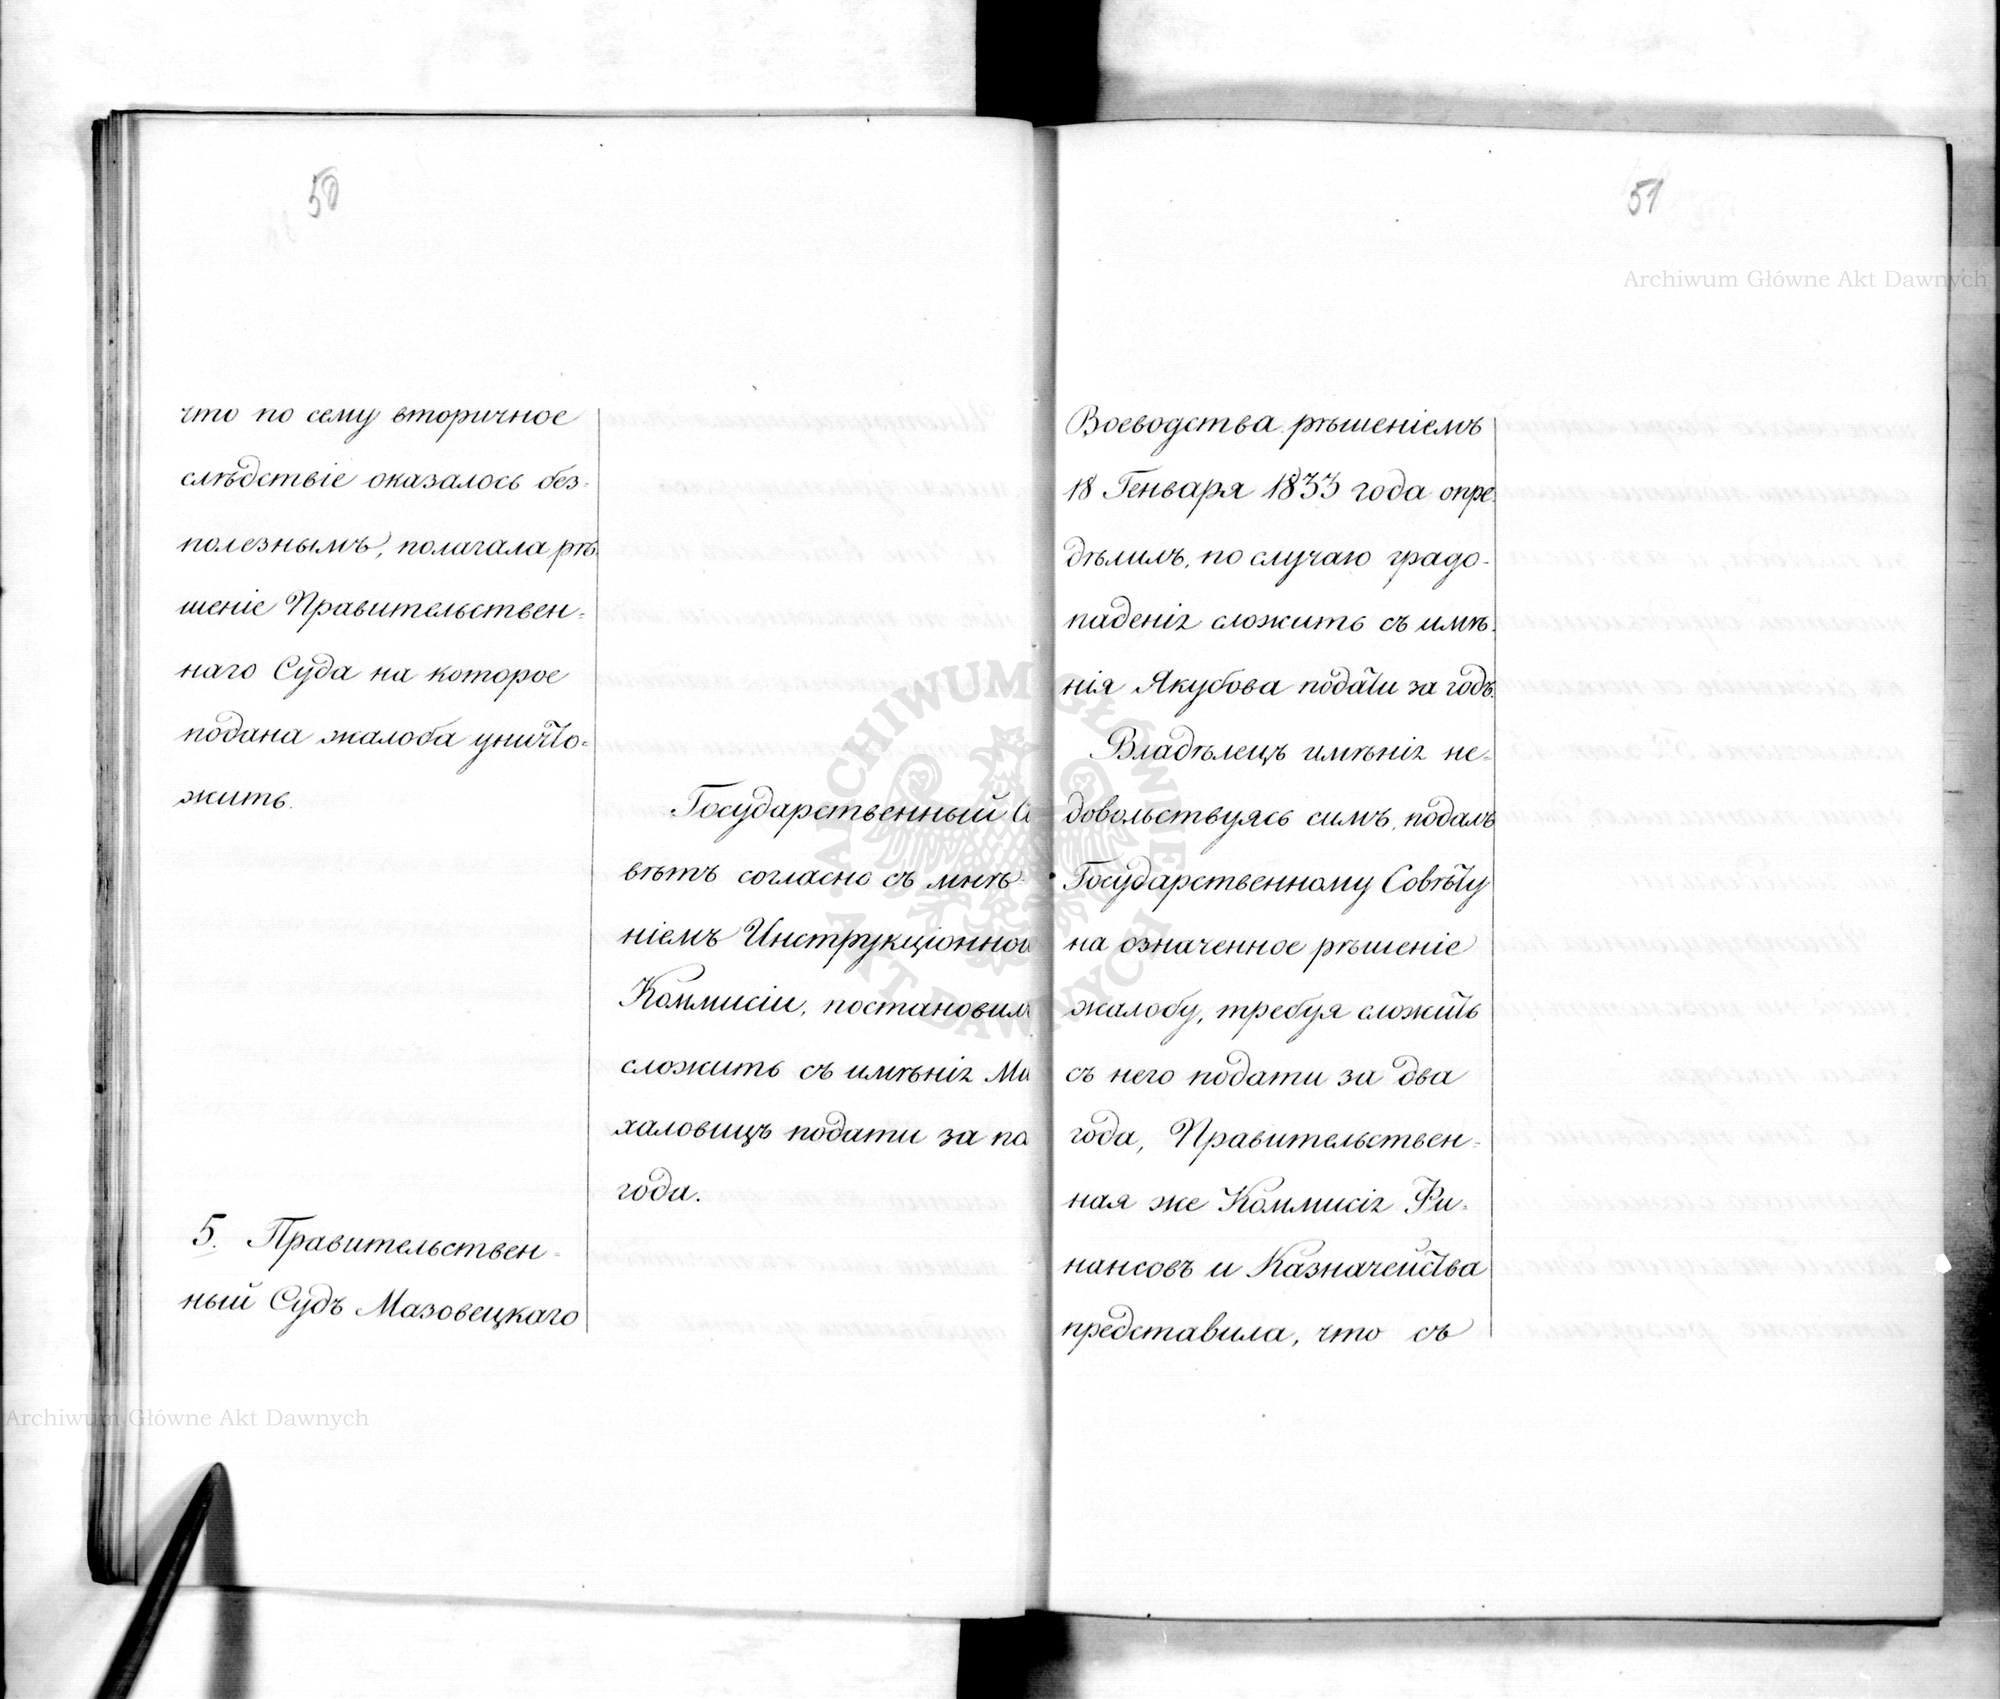 50
что по сему вторичное
слѣдствіе оказалось без-
полезнымъ, полагала рѣ-
шеніе Правительствен-
наго Суда на которое
подана жалоба уничто-
жить.
Государственный Со
вѣтъ согласно съ мнѣ-
ніемъ Инструкціонной
Коммисіи, постановилъ
сложить съ имѣнія Ми
халовицъ подати за по
года.
5. Правительствен-
ный Судъ Мазовецкаго
51
Воеводства рѣшеніемъ
18 Генваря 1833 года опре-
дѣлилъ, по случаю градо-
паденія сложить съ имѣ-
нія Якубова подати за годъ.
Владѣлецъ имѣнія не-
довольствуясь симъ, подалъ
Государственному Совѣту
на означенное рѣшеніе
жалобу, требуя сложить
съ него подати за два
года, Правительствен-
ная же Коммисія Фи-
нансовъ и Казначейства
представила, что съ
Archiwum Główne Akt Dawnych
ARCHIWUM GŁÓWNE AKT DAWNYCH
Archiwum Główne Akt Dawnych